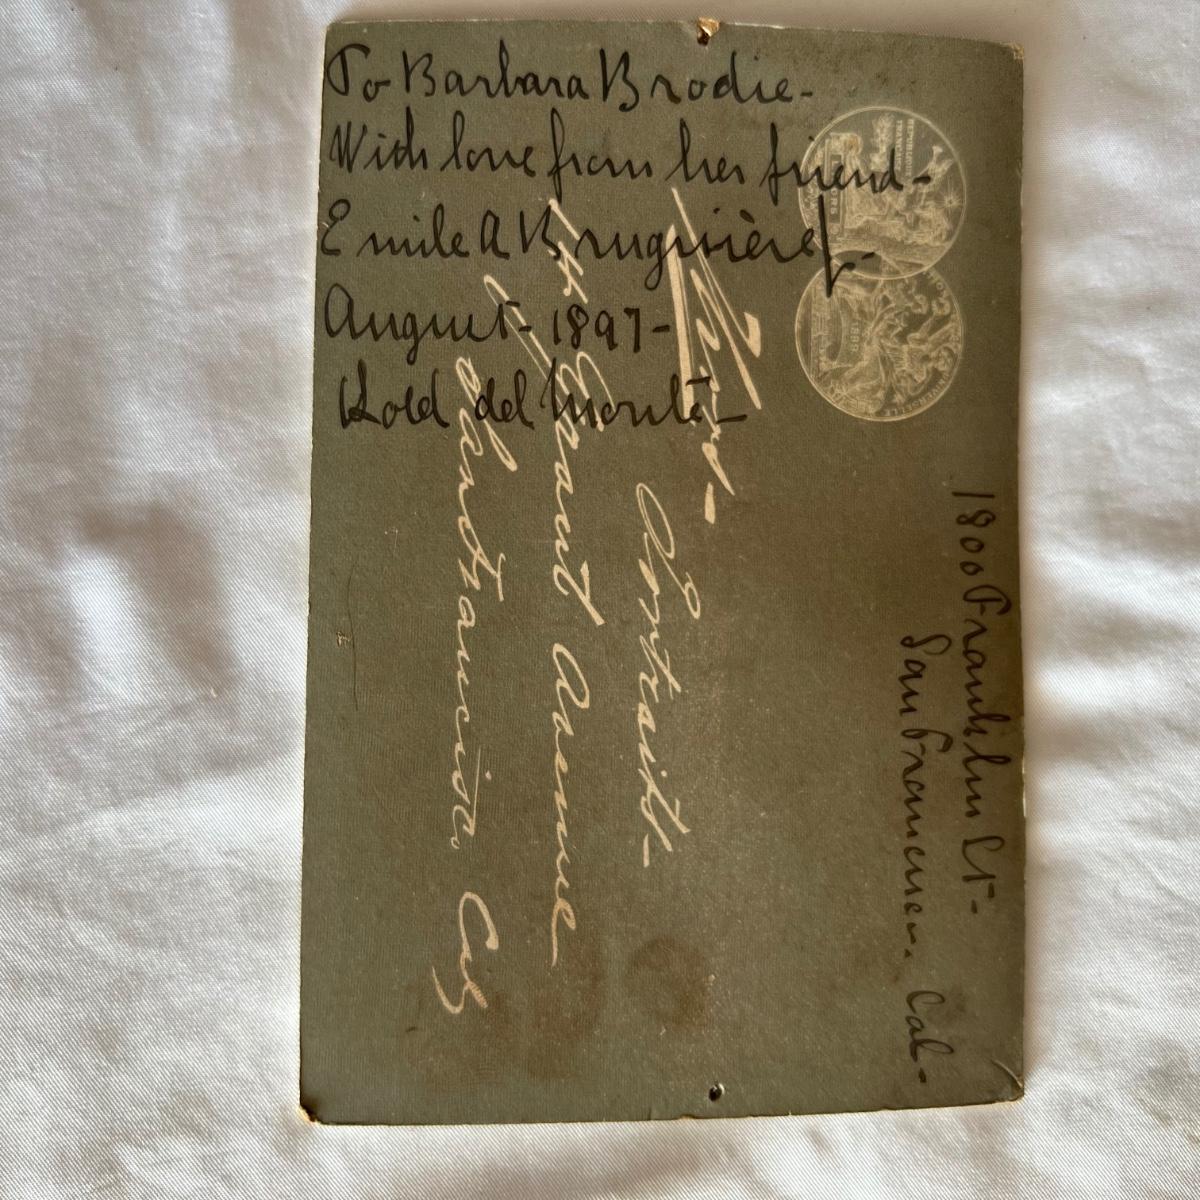 To Barbara Brodie-
With love from her friend-
Emile A Bruguière Jr-
August- 1897-
Hotel del Monte-
1800 Franklin St-
San Francisco. Cal-
Portraits-
14 Grant Avenue
San Francisco, Cal
REPUBLIQUE
FRANCAISE
1889
UNIVERSELLE